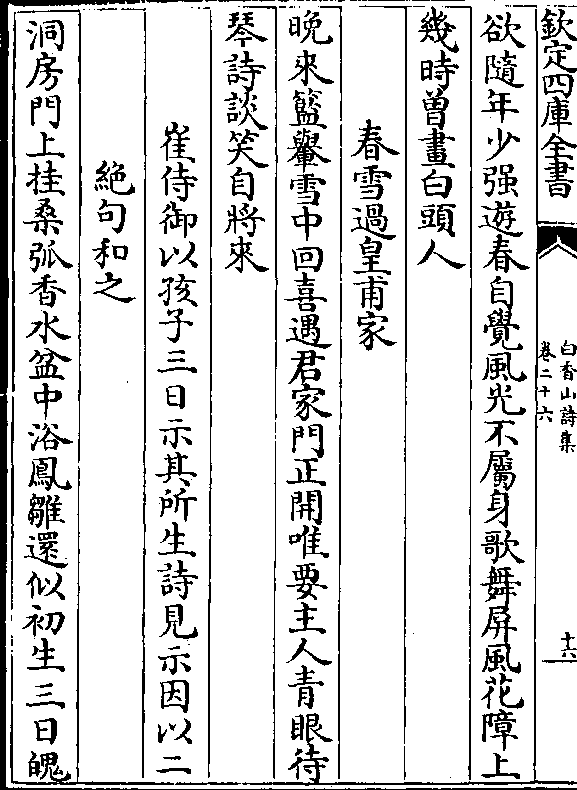 欽定四庫全書
白香山詩集
卷二十六
十六
欲隨年少强遊春自覺風光不屬身歌舞屏風花障上
幾時曽畫白頭人
春雪過皇甫家
晩來籃轝雪中回喜遇君家門正開唯要主人青眼待
琴詩談笑自將來
崔侍御以孩子三日示其所生詩見示因以二
絶句和之
洞房門上挂桑弧香水盆中浴鳳雛還似初生三日魄